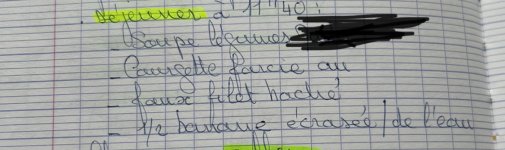 . Déjeuner à 11h40 :
- Soupe légumes
- Courgette farcie au
- faux filet haché
- 1/2 banane écrasée / de l'eau